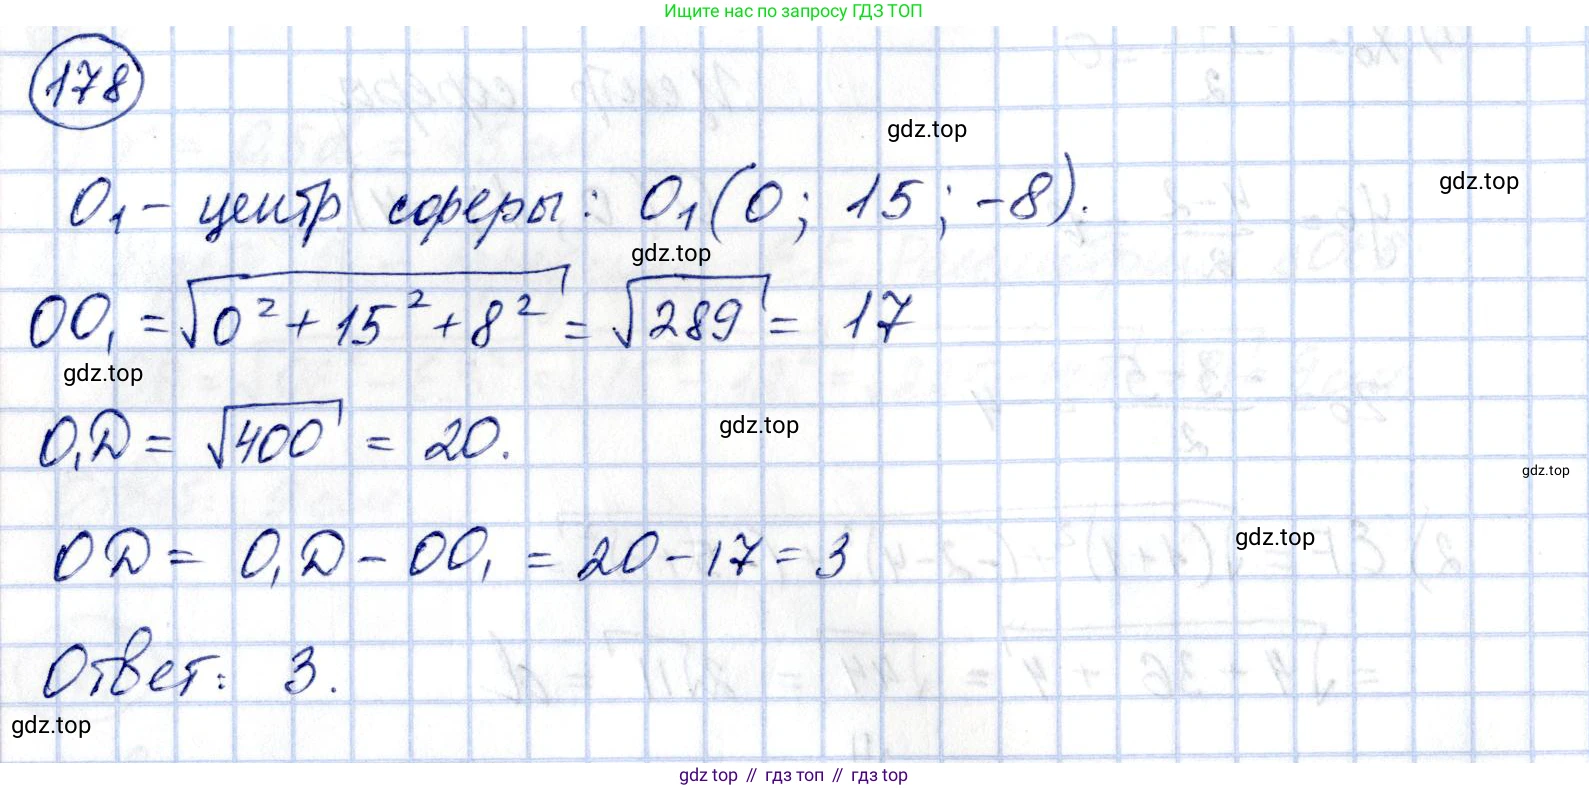 Ищите нас по запросу ГДЗ ТОП
178
gdz.top
O₁ – центр сферы: O₁(0; 15; -8).
gdz.top
gdz.top
OO₁ = √(0² + 15² + 8²) = √289 = 17
gdz.top
O₁D = √400 = 20.
gdz.top
gdz.top
OD = O₁D – OO₁ = 20 – 17 = 3
gdz.top
Ответ: 3.
gdz.top
gdz top // гдз топ // gdz top